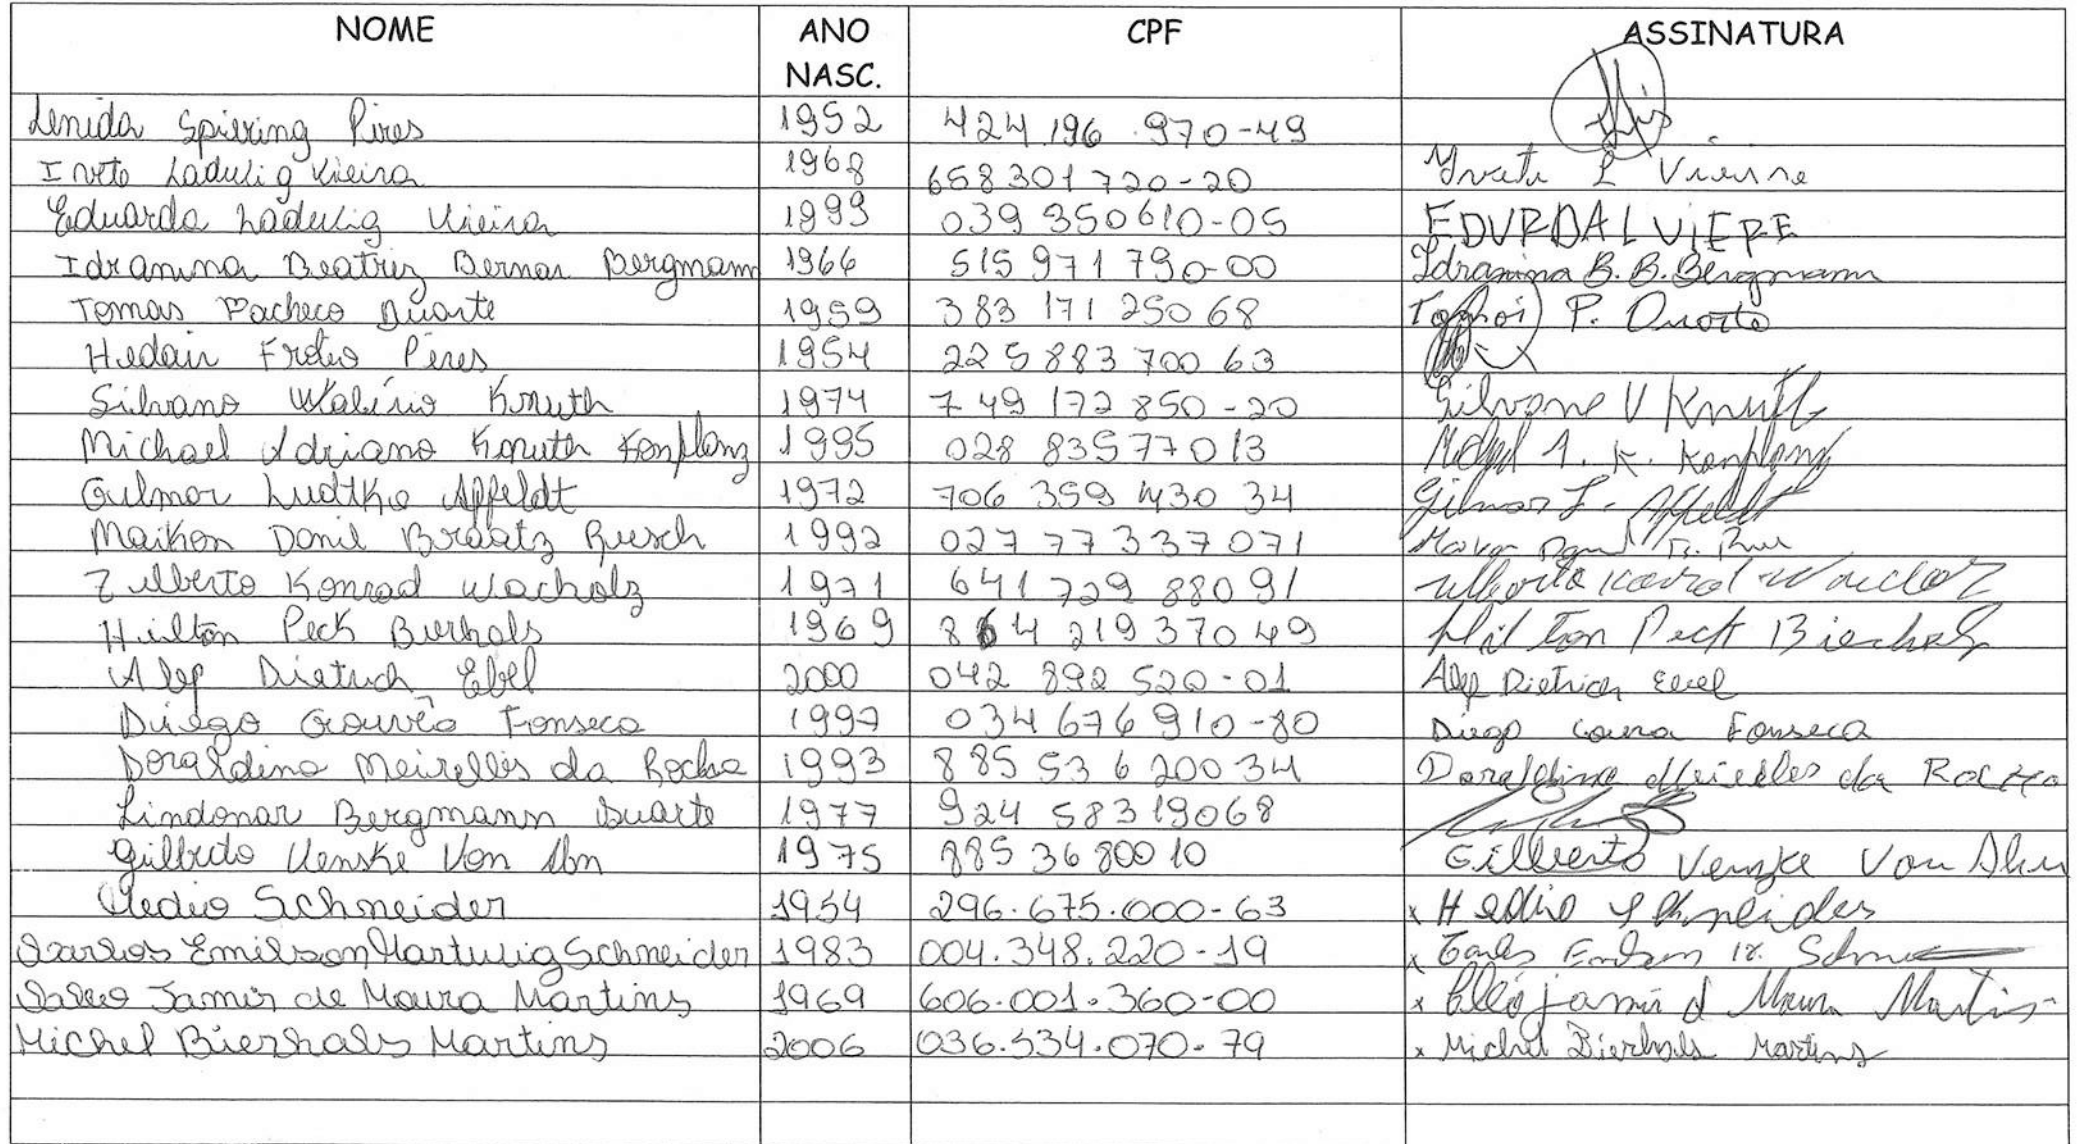 NOME ANO NASC. CPF ASSINATURA
Lenida Spiering Pires 1952 424 196 970-49
Ladulig Vieira 1968 658301720-20 L Vieira
Eduarda Ladulig Vieira 1999 039 350610-05 EDURDA L VIERE
Idranina Beatriz Bergmann 1966 515 971 790-00 Idranina B. B. Bergmann
Tomas Pacheco Duarte 1959 383 171 250 68 P. Duarte
Hedair Peres 1954 225 883 700 63
Silvano Knuth 1974 749 172 850-20 Silvano V Knuth
Michael Adriano Knuth 1995 028 83577013 A. K.
Gilmar Ludtke Affeldt 1972 706 359 430 34 Gilmar L. Affeldt
Maikon Danil Braatz Rusch 1992 027 77337071
Zilberto Konrad Wacholz 1971 641 729 88091
Hilton Peck Bierhals 1969 864 219 37049 Hilton Peck Bierhals
Dietrich Ebel 2000 042 892 520-01 Dietrich
Diego Fonseca 1997 034 676 910-80 Diego Fonseca
Doraldino Meirelles da Rocha 1993 885 53 6 200 34 Doraldino Meirelles da Rocha
Lindonar Bergmann Duarte 1977 924 58319068
Gilberto Venske Von Ahn 1975 885 36 800 10 Gilberto Venske Von Ahn
Hedio Schneider 1954 296.675.000-63 x Hedio Schneider
Carlos Emilson Schneider 1983 004.348.220-19 x
Jamir de Moura Martins 1969 606.001.360-00 x Jamir d Moura Martins
Michel Bierhals Martins 2006 036.534.070-79 x Michel Bierhals Martins